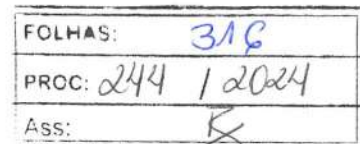 FOLHAS: 316
PROC: 244 / 2024
Ass: